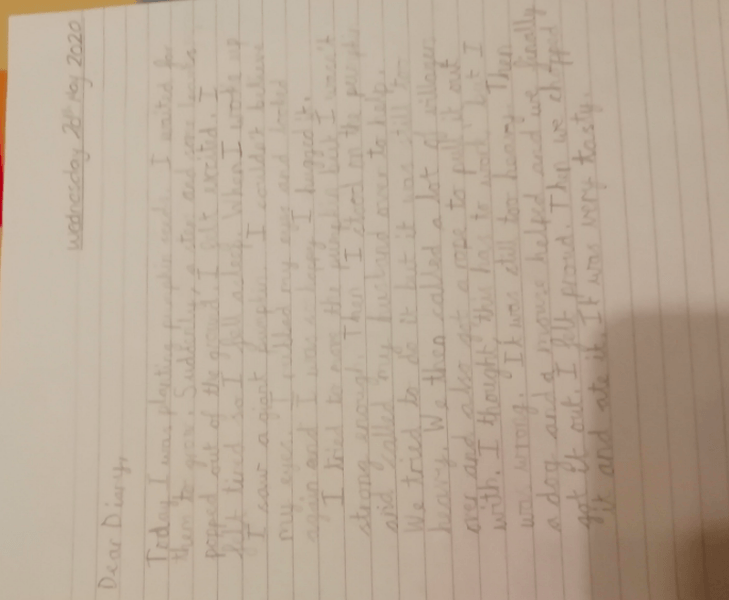 Wednesday 20th May 2020
Dear Diary,
Today I was planting pumpkin seeds. I waited for
them to grow. Suddenly, a stem and some leaves
popped out of the ground. I felt excited. I
felt tired so I fell asleep. When I woke up
I saw a giant pumpkin. I couldn't believe
my eyes. I rubbed my eyes and looked
again and I was so happy I hugged it.
I tried to move the pumpkin but I wasn't
strong enough. Then I stood on the pumpkin
and called my husband over to help.
We tried to do it but it was still too
heavy. We then called a lot of villagers
over and also got a rope to pull it out
with. I thought this has to work but I
was wrong. It was still too heavy. Then
a dog and a mouse helped and we finally
got it out. I felt proud. Then we chopped
it and ate it. It was very tasty.